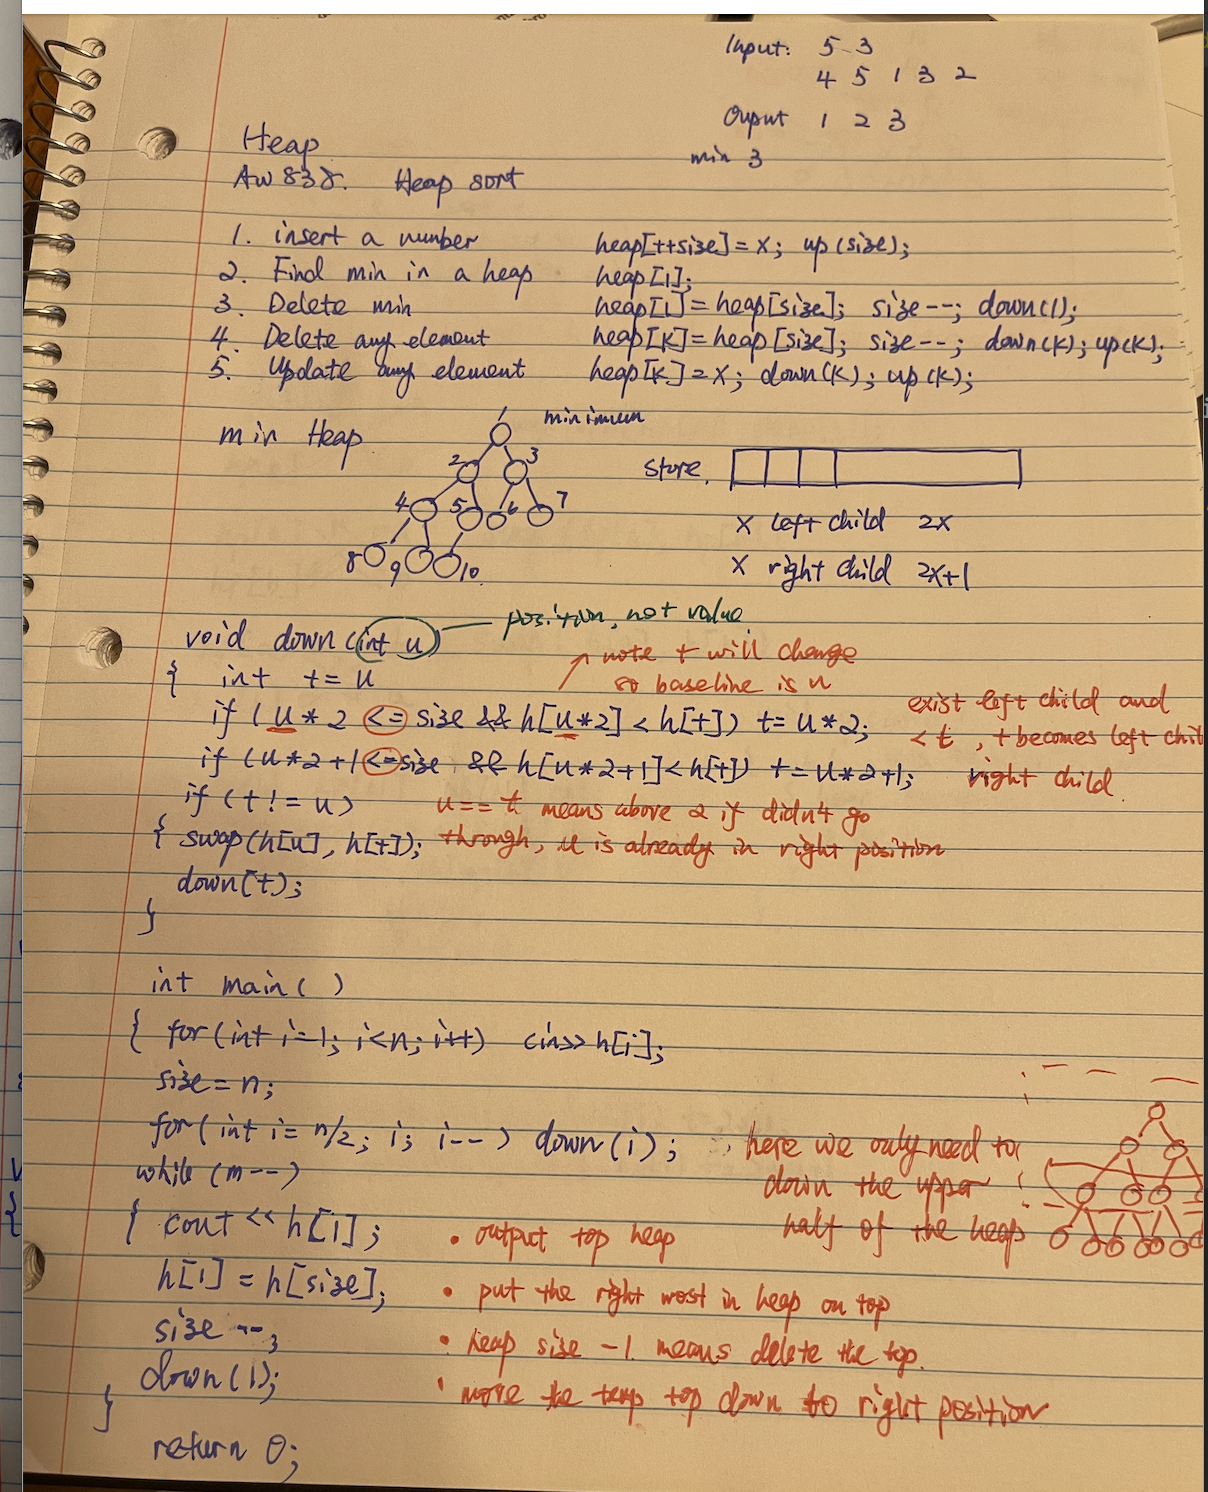 Input: 5 3
4 5 1 3 2
Ouput 1 2 3
min 3
Heap
AW 838. Heap sort
1. insert a number heap[++size] = x; up(size);
2. Find min in a heap heap[1];
3. Delete min heap[1] = heap[size]; size--; down(1);
4. Delete any element heap[k] = heap[size]; size--; down(k); up(k);
5. Update any element heap[k] = x; down(k); up(k);
min Heap
1 minimum
2 3
4 5 6 7
8 9 10
store.
x left child 2x
x right child 2x+1
void down(int u) position, not value
note t will change
so baseline is u
{ int t = u
if (u*2 <= size && h[u*2] < h[t]) t = u*2; exist left child and
< t, t becomes left chil
if (u*2+1 <= size && h[u*2+1] < h[t]) t = u*2+1; right child.
if (t != u) u == t means above 2 if didn't go
{ swap(h[u], h[t]); through, u is already in right position
down(t);
}
int main( )
{ for(int i=1; i<n; i++) cin>> h[i];
size = n;
for(int i = n/2; i; i--) down(i); here we only need to
down the upper
half of the heap
while (m--)
{ cout << h[1]; • output top heap
h[1] = h[size]; • put the right most in heap on top
size --; • heap size -1 means delete the top.
down(1); • move the temp top down to right position
}
return 0;